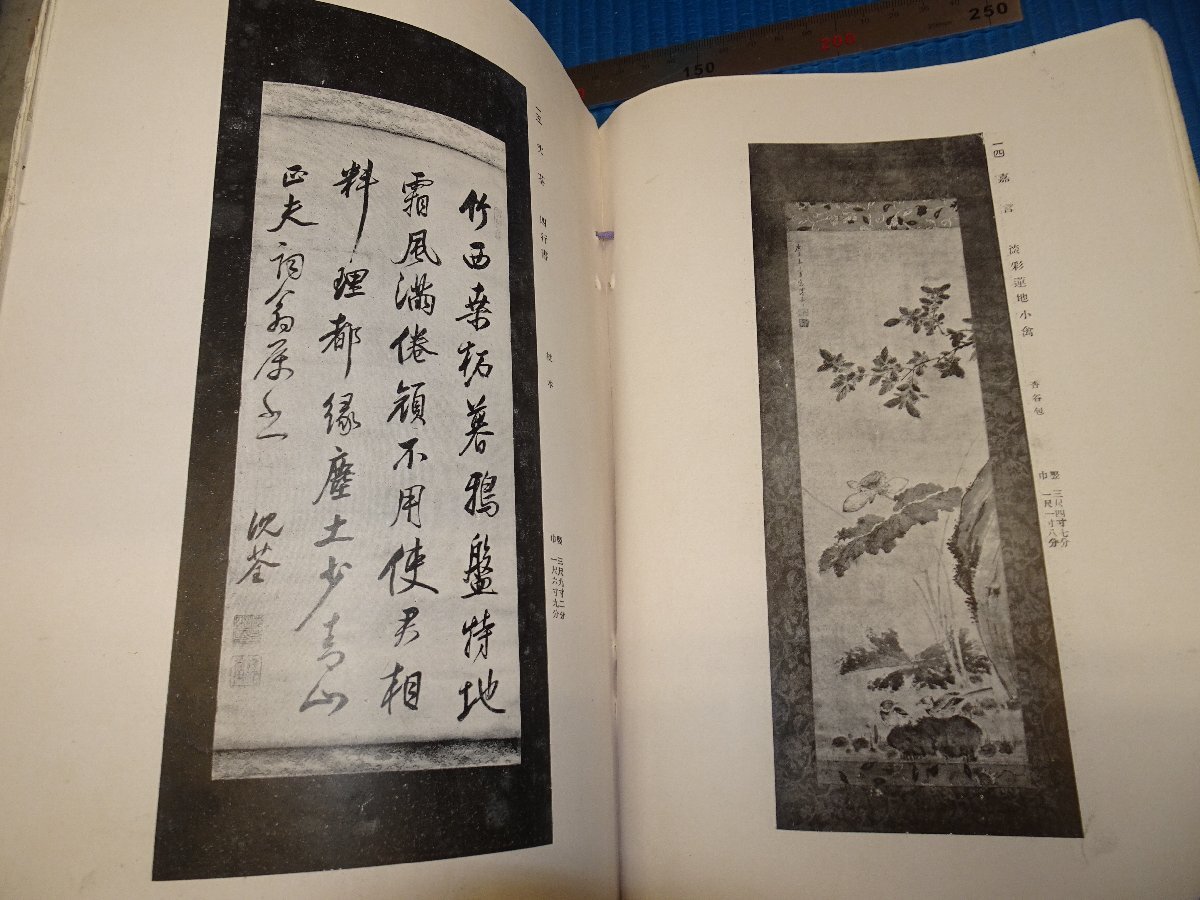 250
200
150
一四 嘉言 淡彩蓮地小禽 香谷包
竪 三尺四寸七分
巾 一尺一寸八分
一五 沈荃 四行書
竪 三尺九寸二分
巾 一尺六寸九分
竹西桑柘暮鴉盤特地
霜風滿倦顔不用使君相
料理都緣塵土少青山
正夫詞翁属
沈荃